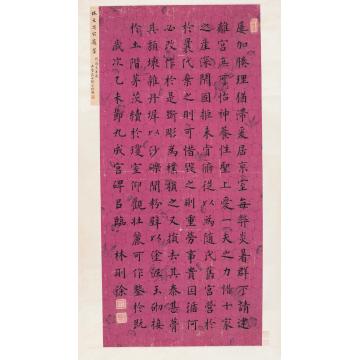 屢加勝理猶滯爰居京室每弊炎暑群下請建
離宮庶可怡神養性聖上愛一夫之力惜十家
之產深閉固拒未肯俯從以為隨代舊宮營於
曩代棄之則可惜毀之則重勞事貴因循何
必改作於是斲彫為樸損之又損去其泰甚葺
其頹壞雜丹墀以沙礫間粉壁以塗泥玉砌接
於土階茅茨續於瓊室仰觀壯麗可作鑒於既
歲次乙未節九成宮碑呂臨 林則徐